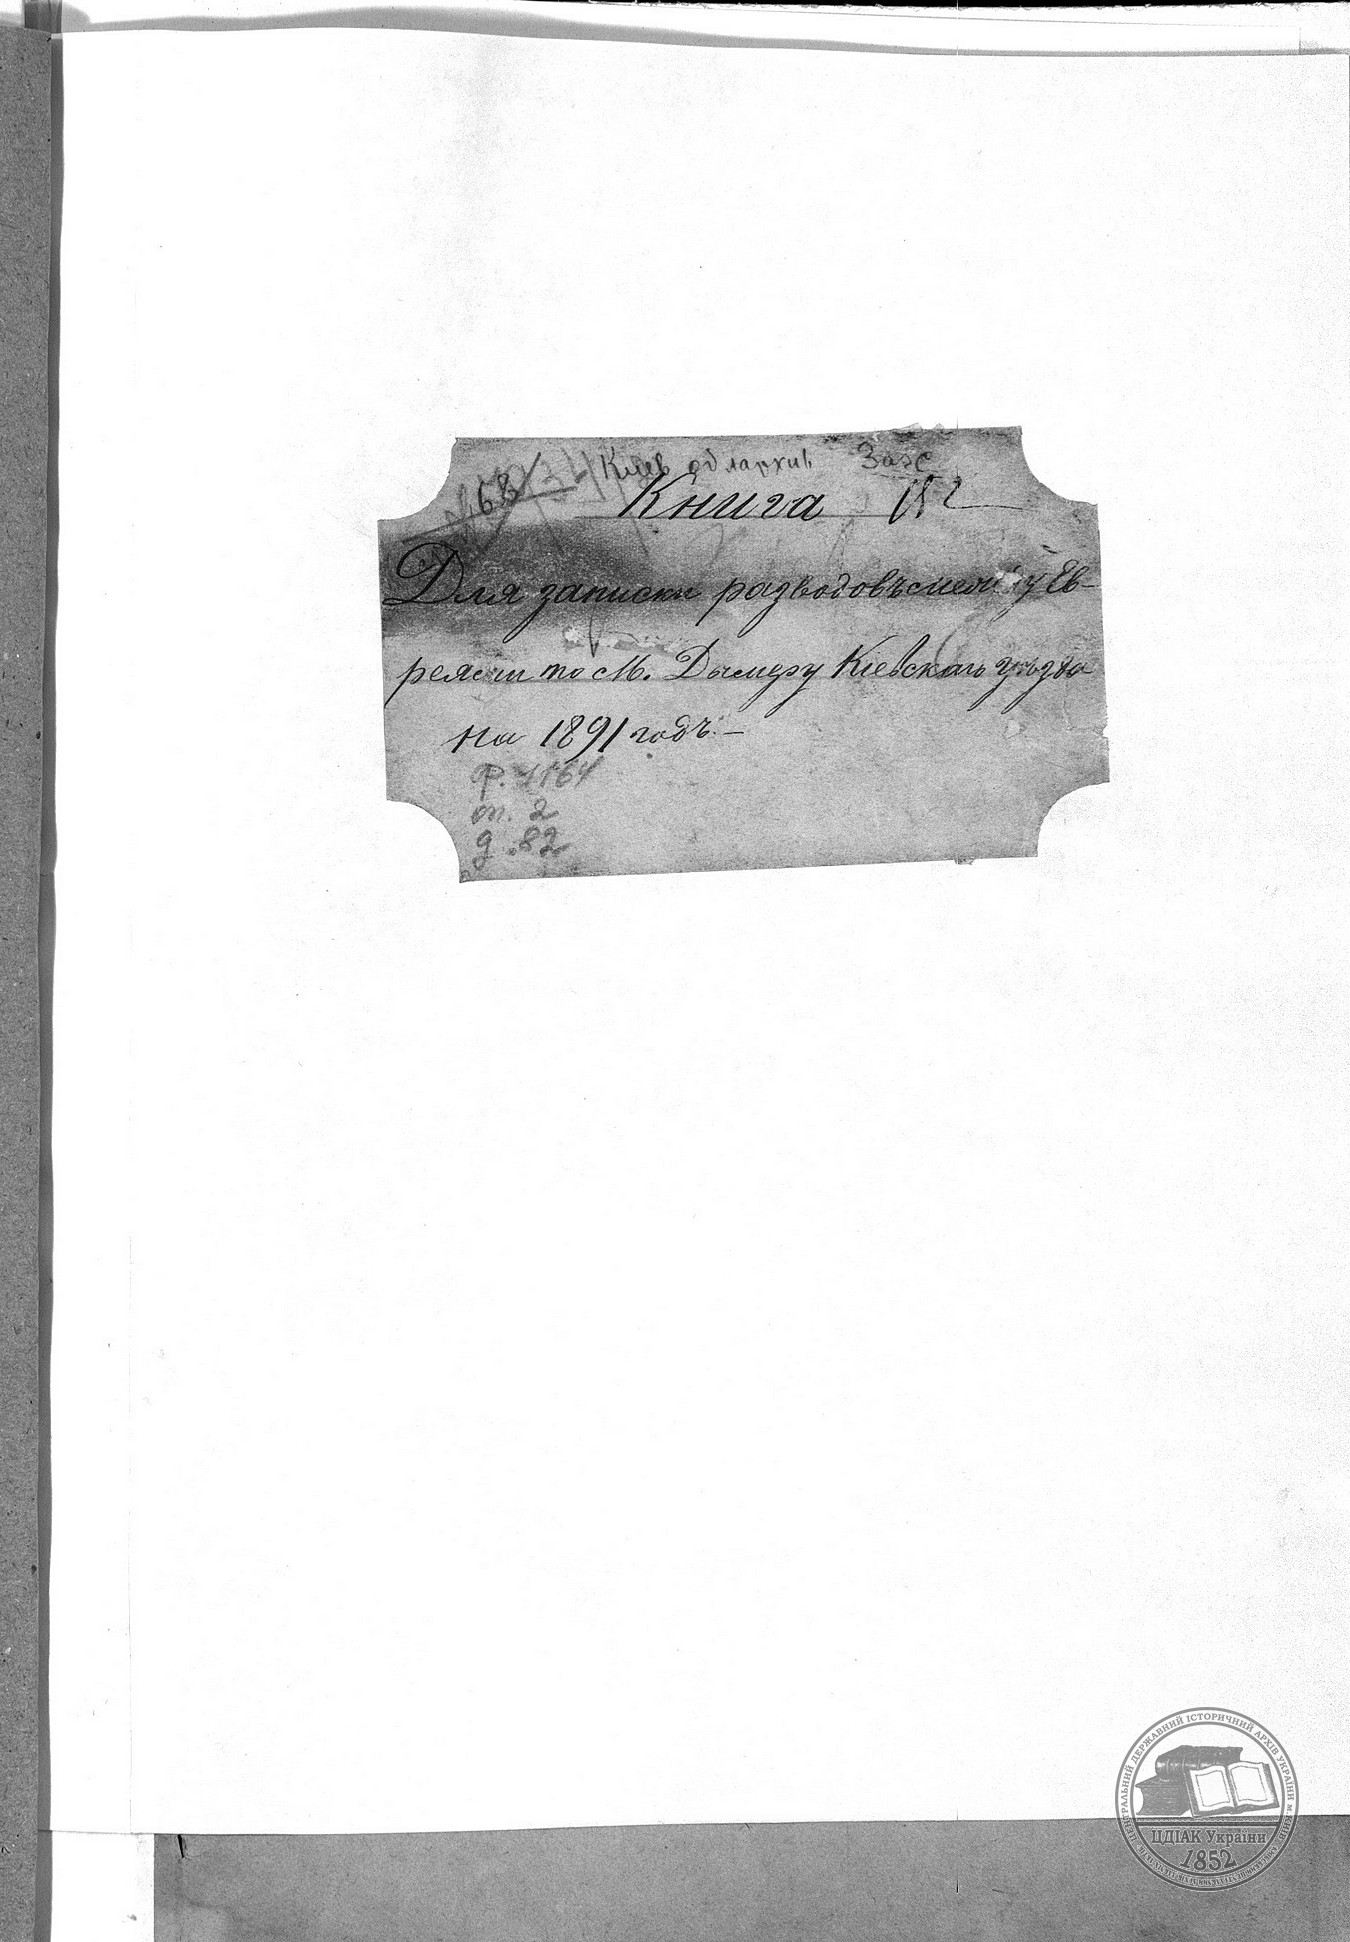 Киев облархив Загс
68
Книга
Для записки разводовъ между Ев-
реями по М. Дымеру Кіевскаго уѣзда
на 1891 годъ. –
Ф. 1164
оп. 2
д. 82
ЦЕНТРАЛЬНИЙ ДЕРЖАВНИЙ ІСТОРИЧНИЙ АРХІВ УКРАЇНИ м. КИЇВ
ЦДІАК України
1852